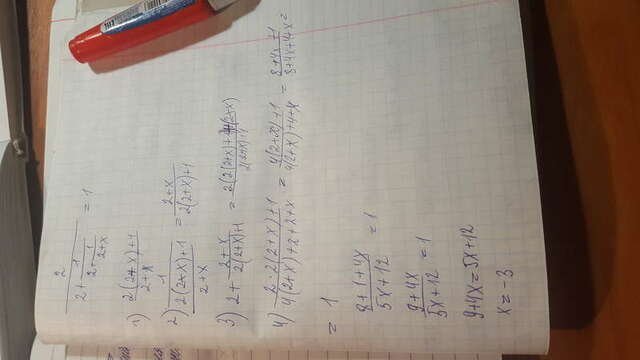 2/(2+1/(2+1/(2+x))) = 1
1) (2(2+x)+1)/(2+x)
2) 1/((2(2+x)+1)/(2+x)) = (2+x)/(2(2+x)+1)
3) 2+(2+x)/(2(2+x)+1) =
4) (2·2(2+x)+1)/(4(2+x)+2+2+x) = (4(2+x)+1)/(4(2+x)+4+x) = (8+4x+1)/(8+4x+4x =
= 1
(8+1+4x)/(5x+12) = 1
(9+4x)/(5x+12) = 1
9+4x=5x+12
x=-3